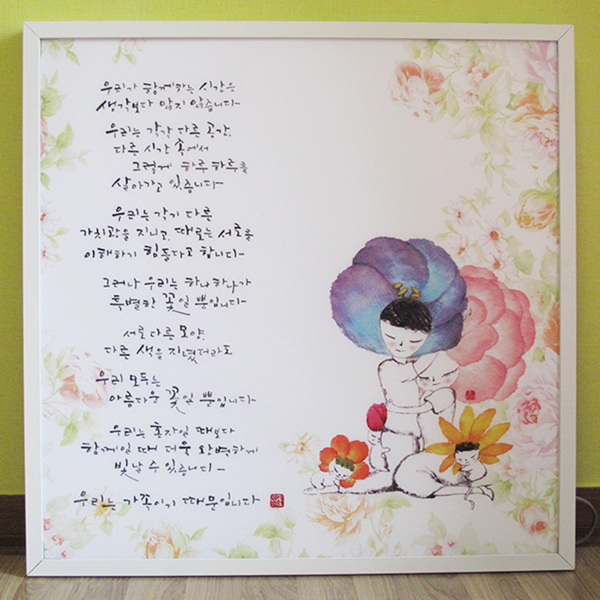 우리가 함께하는 시간은
생각보다 많지 않습니다
우리는 각각 다른 공간,
다른 시간 속에서
그렇게 하루 하루를
살아가고 있습니다
우리는 각기 다른
가치관을 지니고, 때로는 서로를
이해하기 힘들다고 합니다
그러나 우리는 하나하나가
특별한 꽃일 뿐입니다
서로 다른 모양,
다른 색을 지녔더라도
우리 모두는
아름다운 꽃일 뿐입니다
우리는 혼자일 때보다
함께일 때 더욱 완벽하게
빛날 수 있습니다
우리는 가족이기 때문입니다